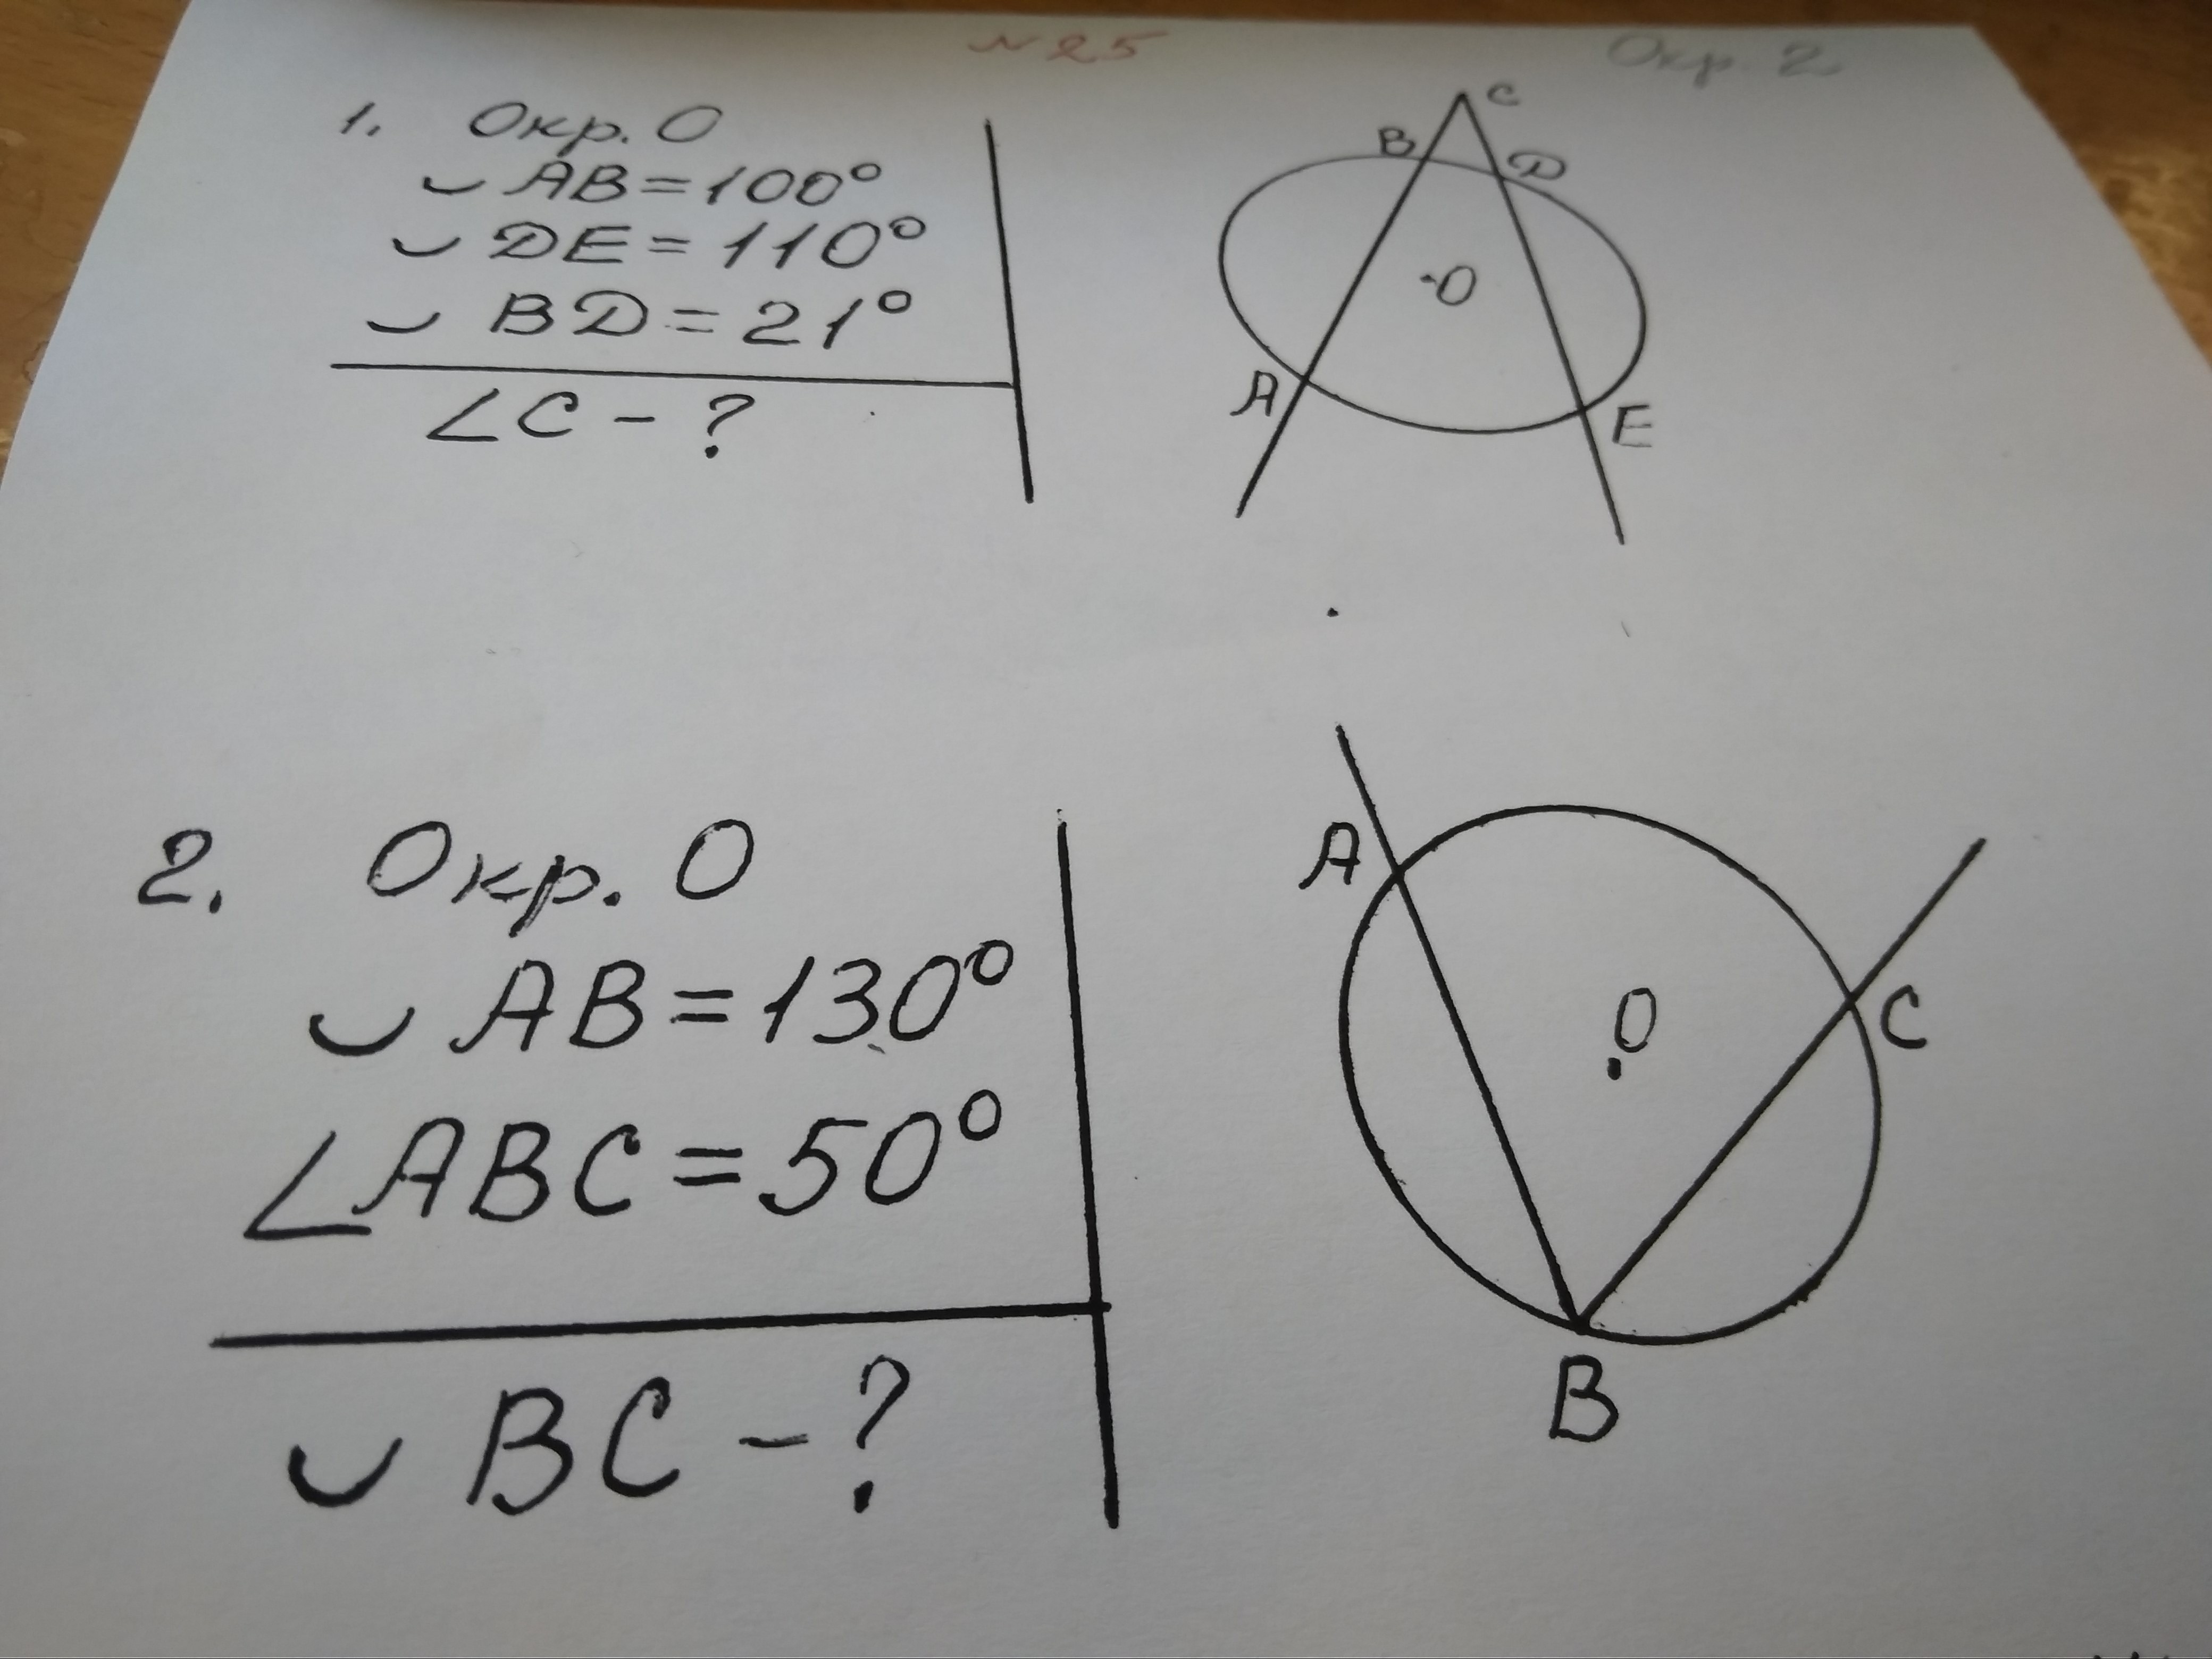 №25
Окр. 2
1. Окр. О
◡ AB = 100°
◡ DE = 110°
◡ BD = 21°
∠C - ?
C
B
D
O
A
E
2. Окр. О
◡ AB = 130°
∠ABC = 50°
◡ BC - ?
A
C
O
B